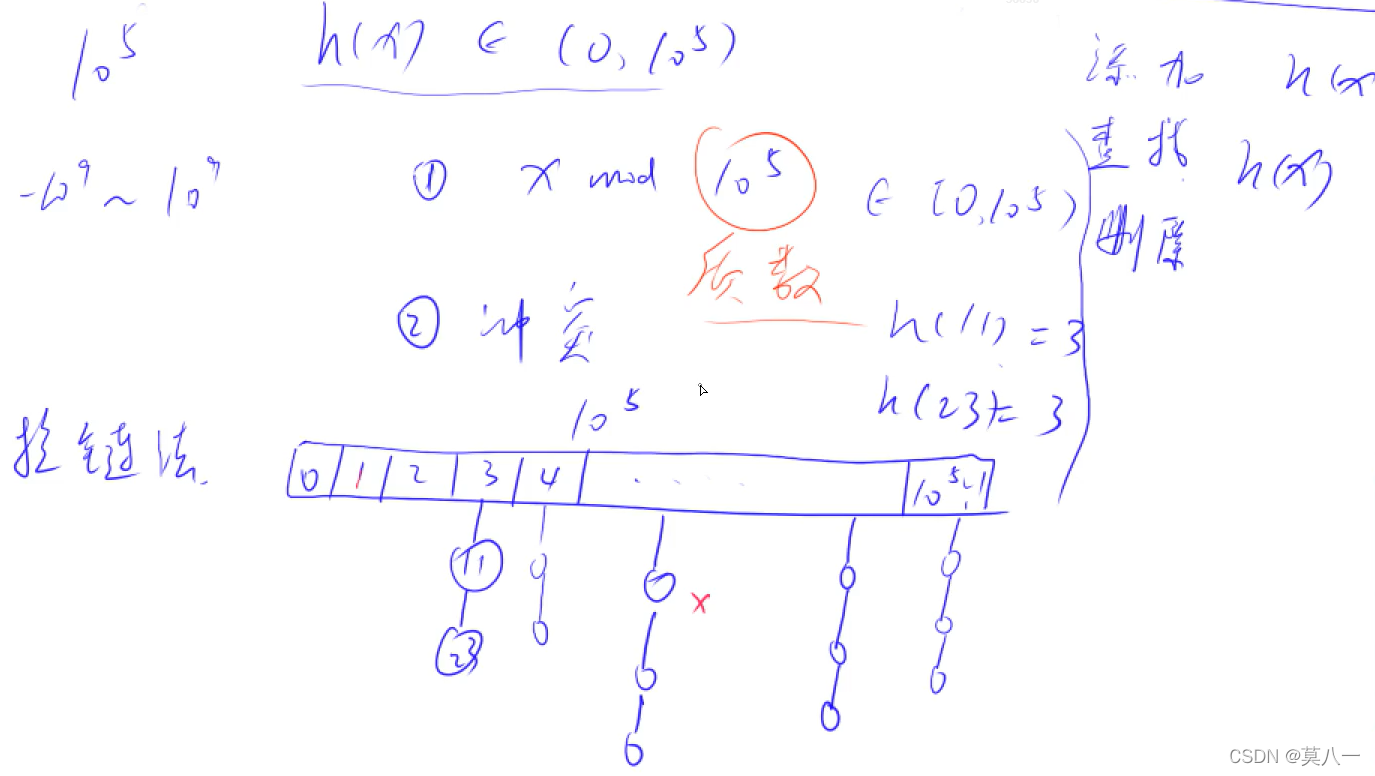 10^5 h(x) ∈ (0, 10^5)
添加 h(x
-10^9 ~ 10^9 ① x mod 10^5 ∈ [0, 10^5)
查找 h(x)
删除
质数
② 冲突 h(11) = 3
h(23) = 3
拉链法 10^5
0 1 2 3 4 ..... 10^5-1
11
23
x
CSDN @莫八一